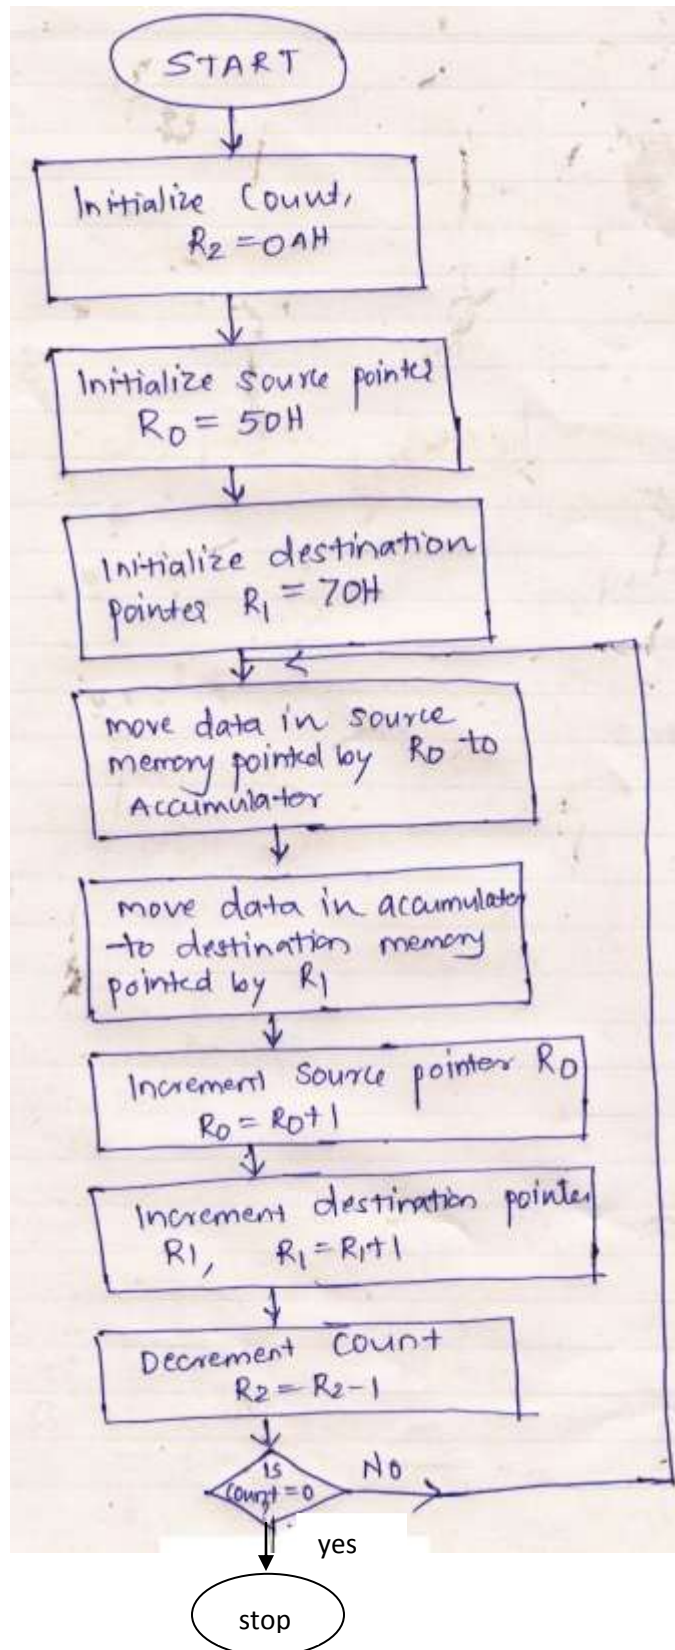 START
Initialize Count,
R2 = 0AH
Initialize source pointer
R0 = 50H
Initialize destination
pointer R1 = 70H
move data in source
memory pointed by R0 to
Accumulator
move data in accumulator
to destination memory
pointed by R1
Increment source pointer R0
R0 = R0+1
Increment destination pointer
R1, R1 = R1+1
Decrement count
R2 = R2-1
Is
Count = 0
?
NO
yes
stop